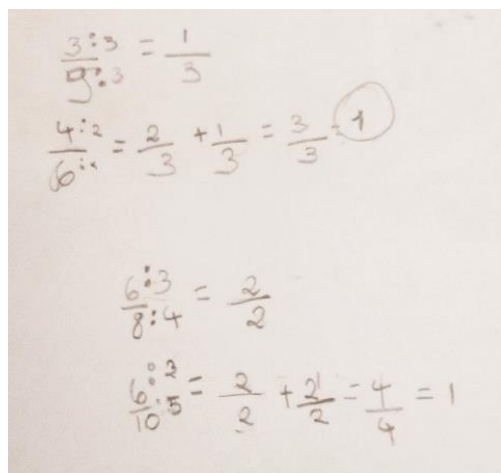 3:3/9:3 = 1/3
4:2/6:2 = 2/3 + 1/3 = 3/3 = 1
6:3/8:4 = 2/2
6:2/10:5 = 2/2 + 2/2 = 4/4 = 1